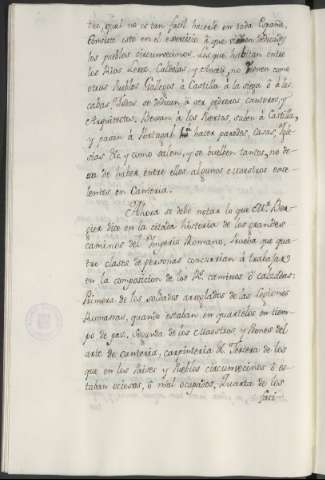 tes, qual no es tan facil hacerlo en toda España,
Consiste esto en el exercicio à que viven dedicados
los pueblos circumvecinos. Los que habitan entre
los Rios Lerez, Caldelas, y Oitabén, no vienen como
otros Pueblos Gallegos à Castilla à la siega ò à las
cabas. Todos se dedican à ser pedreros canteros, y
Arquitectos. Dexan à los Puertos, salen à Castilla,
y pasan à Portugal à hacer paredes, casas, Igle-
sias &c, y como salen, y se buelben tantos, no de-
xa de haber entre ellos algunos Maestros exce-
lentes en Canteria.
Ahora se debe notar lo que Mr. Ber-
gier dice en la citada historia de los grandes
caminos del Imperio Romano, prueba que qua-
tro clases de personas concurrian à trabajar
en la composicion de los Rs. caminos ò calzadas:
Primera de los soldados arreglados de las Legiones
Romanas, quando estaban en quarteles en tiem-
po de paz. Segunda de los Maestros, y Peones del
arte de canteria, carpinteria &. Tercera de los
que en los Paises y Pueblos circumvecinos ò es-
taban ociosos, ò mal ocupados, Quarta de los
faci-